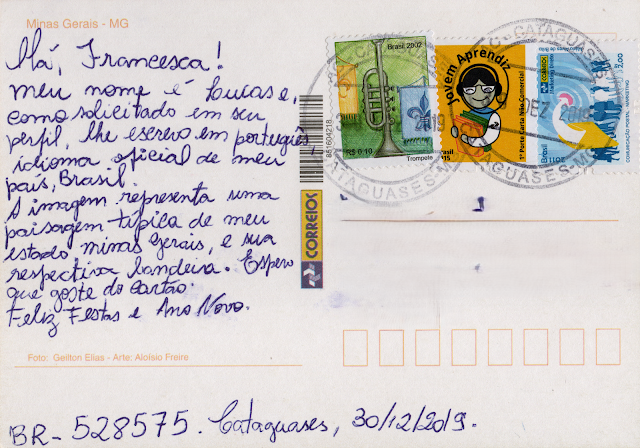 Minas Gerais - MG
Olá, Francesca!
meu nome é Lucas e,
como solicitado em seu
perfil, lhe escrevo em português,
idioma oficial de meu
país, Brasil.
A imagem representa uma
paisagem típica de meu
estado minas Gerais, e sua
respectiva bandeira. Espero
que goste do Cartão.
Feliz Festas e Ano Novo.
Foto: Geilton Elias - Arte: Aloísio Freire
BR- 528575. Cataguases, 30/12/2019.
881604218
CORREIOS
Brasil 2002
R$ 0,10
Trompete
Jovem Aprendiz
1º Porte Carta Não Comercial
Brasil
CORREIOS
Brasil
COMUNICAÇÃO POSTAL - MARKETING
CATAGUASES
CATAGUASES-M
DEZ